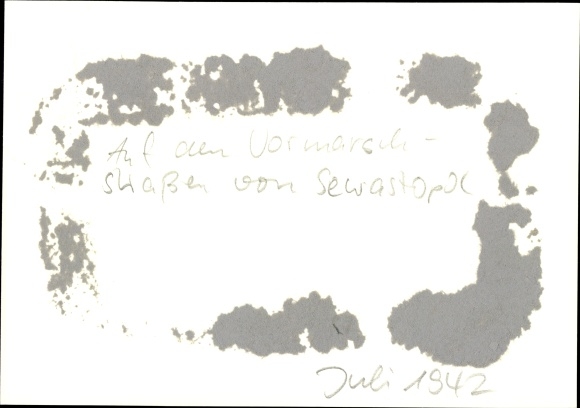 Auf den Vormarsch-
straßen von Sewastopol
Juli 1942